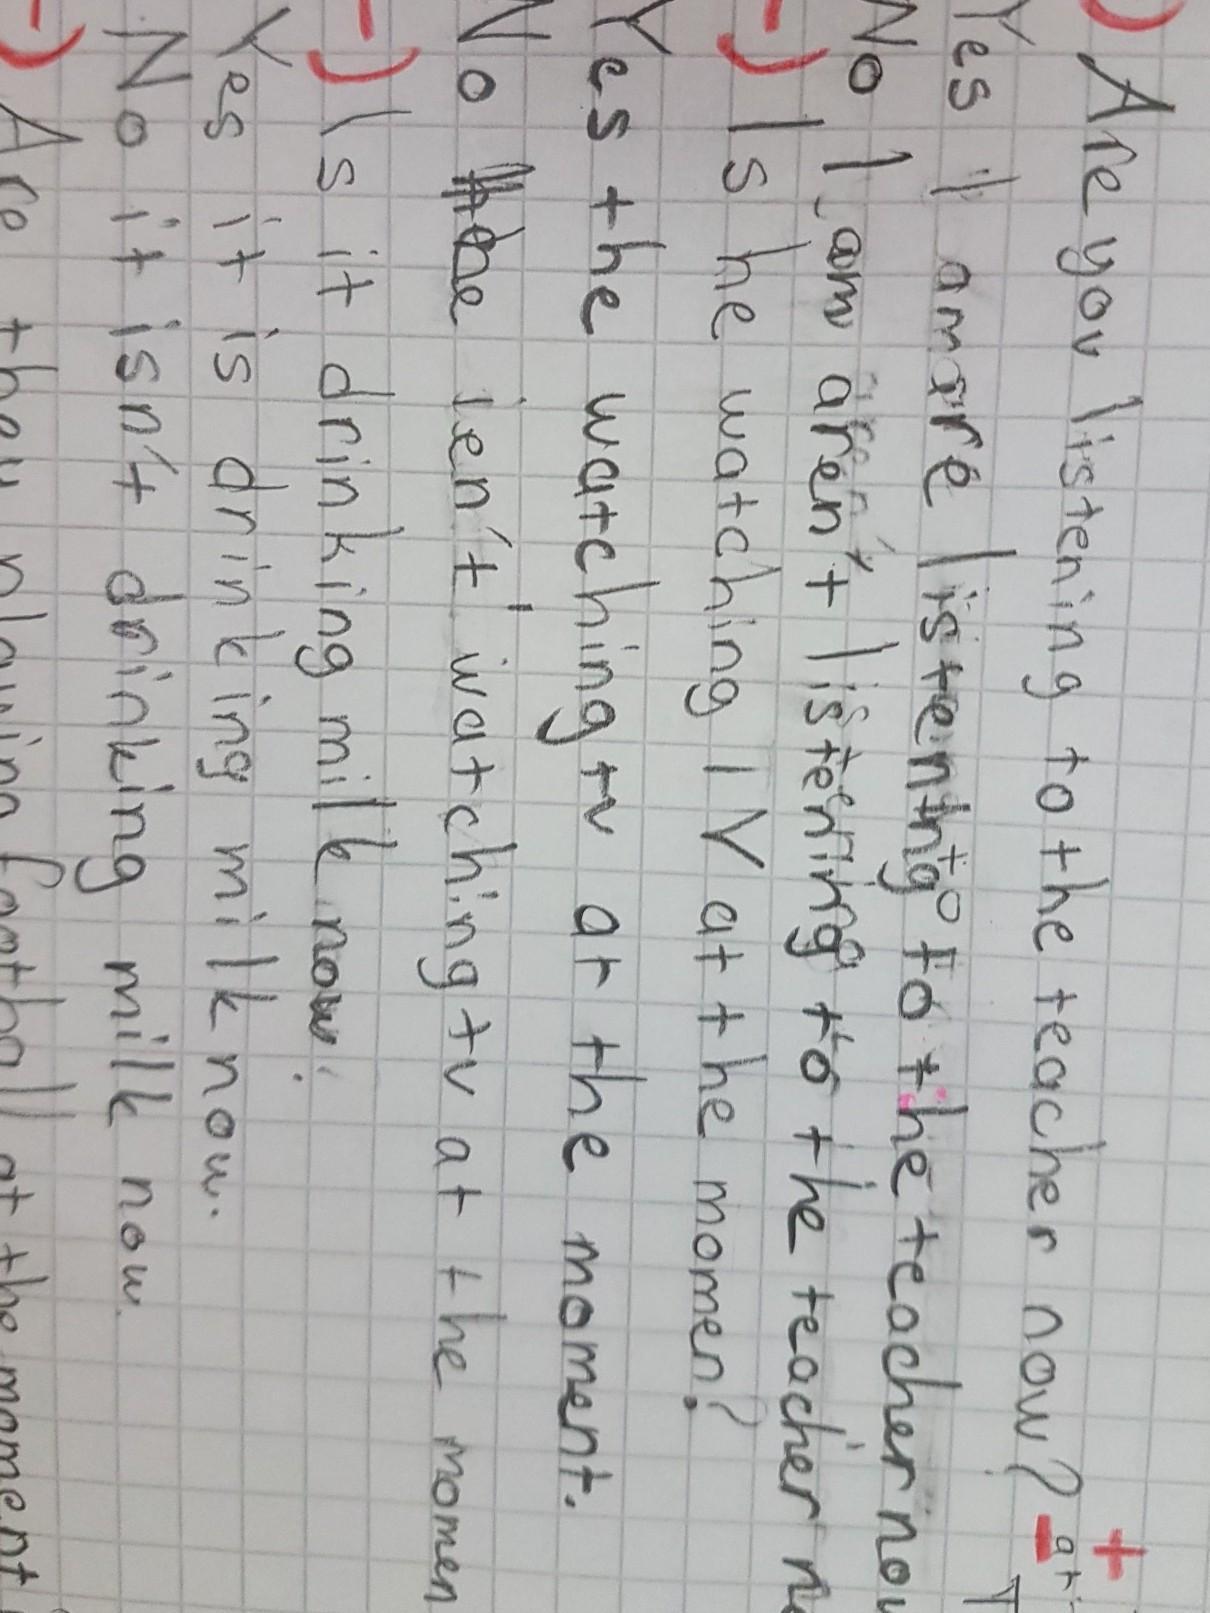 ) Are you listening to the teacher now? +
Yes I amare listening to to the teacher now
No I am aren't listening to the teacher n
-) Is he watching TV at the momen?
Yes the watching tv at the moment.
No he ien't watching tv at the momen
-) Is it drinking milk now.
Yes it is drinking milk now.
No it isn't drinking milk now.
-) Are they playing football at the moment